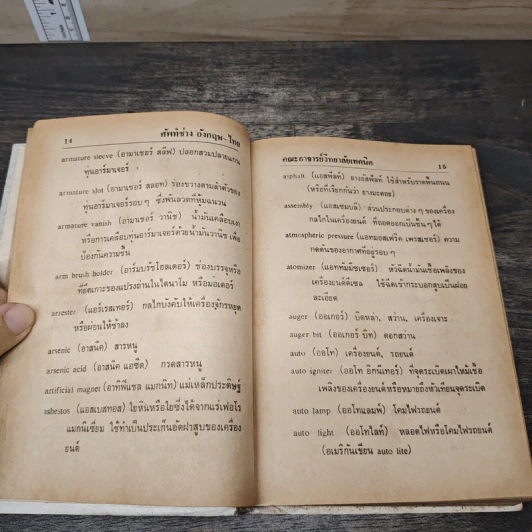 14 ศัพท์ช่าง อังกฤษ-ไทย
armature sleeve (อามาเชอร์ สลีฟ) ปลอกสวมปลายแกน
ทุ่นอาร์มาเจอร์
armature slot (อามาเชอร์ สลอท) ร่องขวางตามลำตัวของ
ทุ่นอาร์มาเจอร์รอบๆ ซึ่งพันลวดที่หุ้มฉนวน
armature vanish (อามาเชอร์ วานิช) น้ำมันเคลือบเงา
หรือการเคลือบทุ่นอาร์มาเจอร์ด้วยน้ำมันวานิช เพื่อ
ป้องกันความชื้น
arm brush holder (อาร์มบรัชโฮลเดอร์) ช่องบรรจุหรือ
ที่ยึดเกาะของแปรงถ่านในไดนาโม หรือมอเตอร์
arrester (แอร์เรสเทอร์) กลไกบังคับให้เครื่องจักรหยุด
หรือผ่อนให้ช้าลง
arsenic (อาสนิค) สารหนู
arsenic acid (อาสนิค แอซิด) กรดสารหนู
artificial magnet (อาทิฟิแชล แมกนิท) แม่เหล็กประดิษฐ์
asbestos (แอสเบสทอส) ใยหินหรือใยซึ่งได้จากแร่เฟอโร
แมกนิเซียม ใช้ทำเป็นประเก็นอัดฝาสูบของเครื่อง
ยนต์
คณะอาจารย์วิทยาลัยเทคนิค 15
asphalt (แอสฟัลท์) ยางอัสฟัลท์ ใช้สำหรับราดพื้นถนน
(หรือที่เรียกกันว่า ยางมะตอย)
assembly (แอสเซมบลี) ส่วนประกอบต่าง ๆ ของเครื่อง
กลไกในเครื่องยนต์ ที่ถอดออกเป็นชิ้นๆ ได้
atmospheric pressure (แอทมอสเฟริค เพรสเชอร์) ความ
กดดันของอากาศที่อยู่รอบๆ
atomizer (แอททัมมัยซเซอร์) หัวฉีดน้ำมันเชื้อเพลิงของ
เครื่องยนต์ดีเซล ใช้ฉีดเข้ากระบอกสูบเป็นฝอย
ละเอียด
auger (ออเกอร์) บิดหล่า, สว่าน, เครื่องเจาะ
auger bit (ออเกอร์ บิท) ดอกสว่าน
auto (ออโท) เครื่องยนต์, รถยนต์
auto igniter (ออโท อิกนิเทอร์) ที่จุดระเบิดเผาไหม้เชื้อ
เพลิงของเครื่องยนต์หรือหมายถึงหัวเทียนจุดระเบิด
auto lamp (ออโทแลมพ์) โคมไฟรถยนต์
auto light (ออโทไลท์) หลอดไฟหรือโคมไฟรถยนต์
(อเมริกันเขียน auto lite)